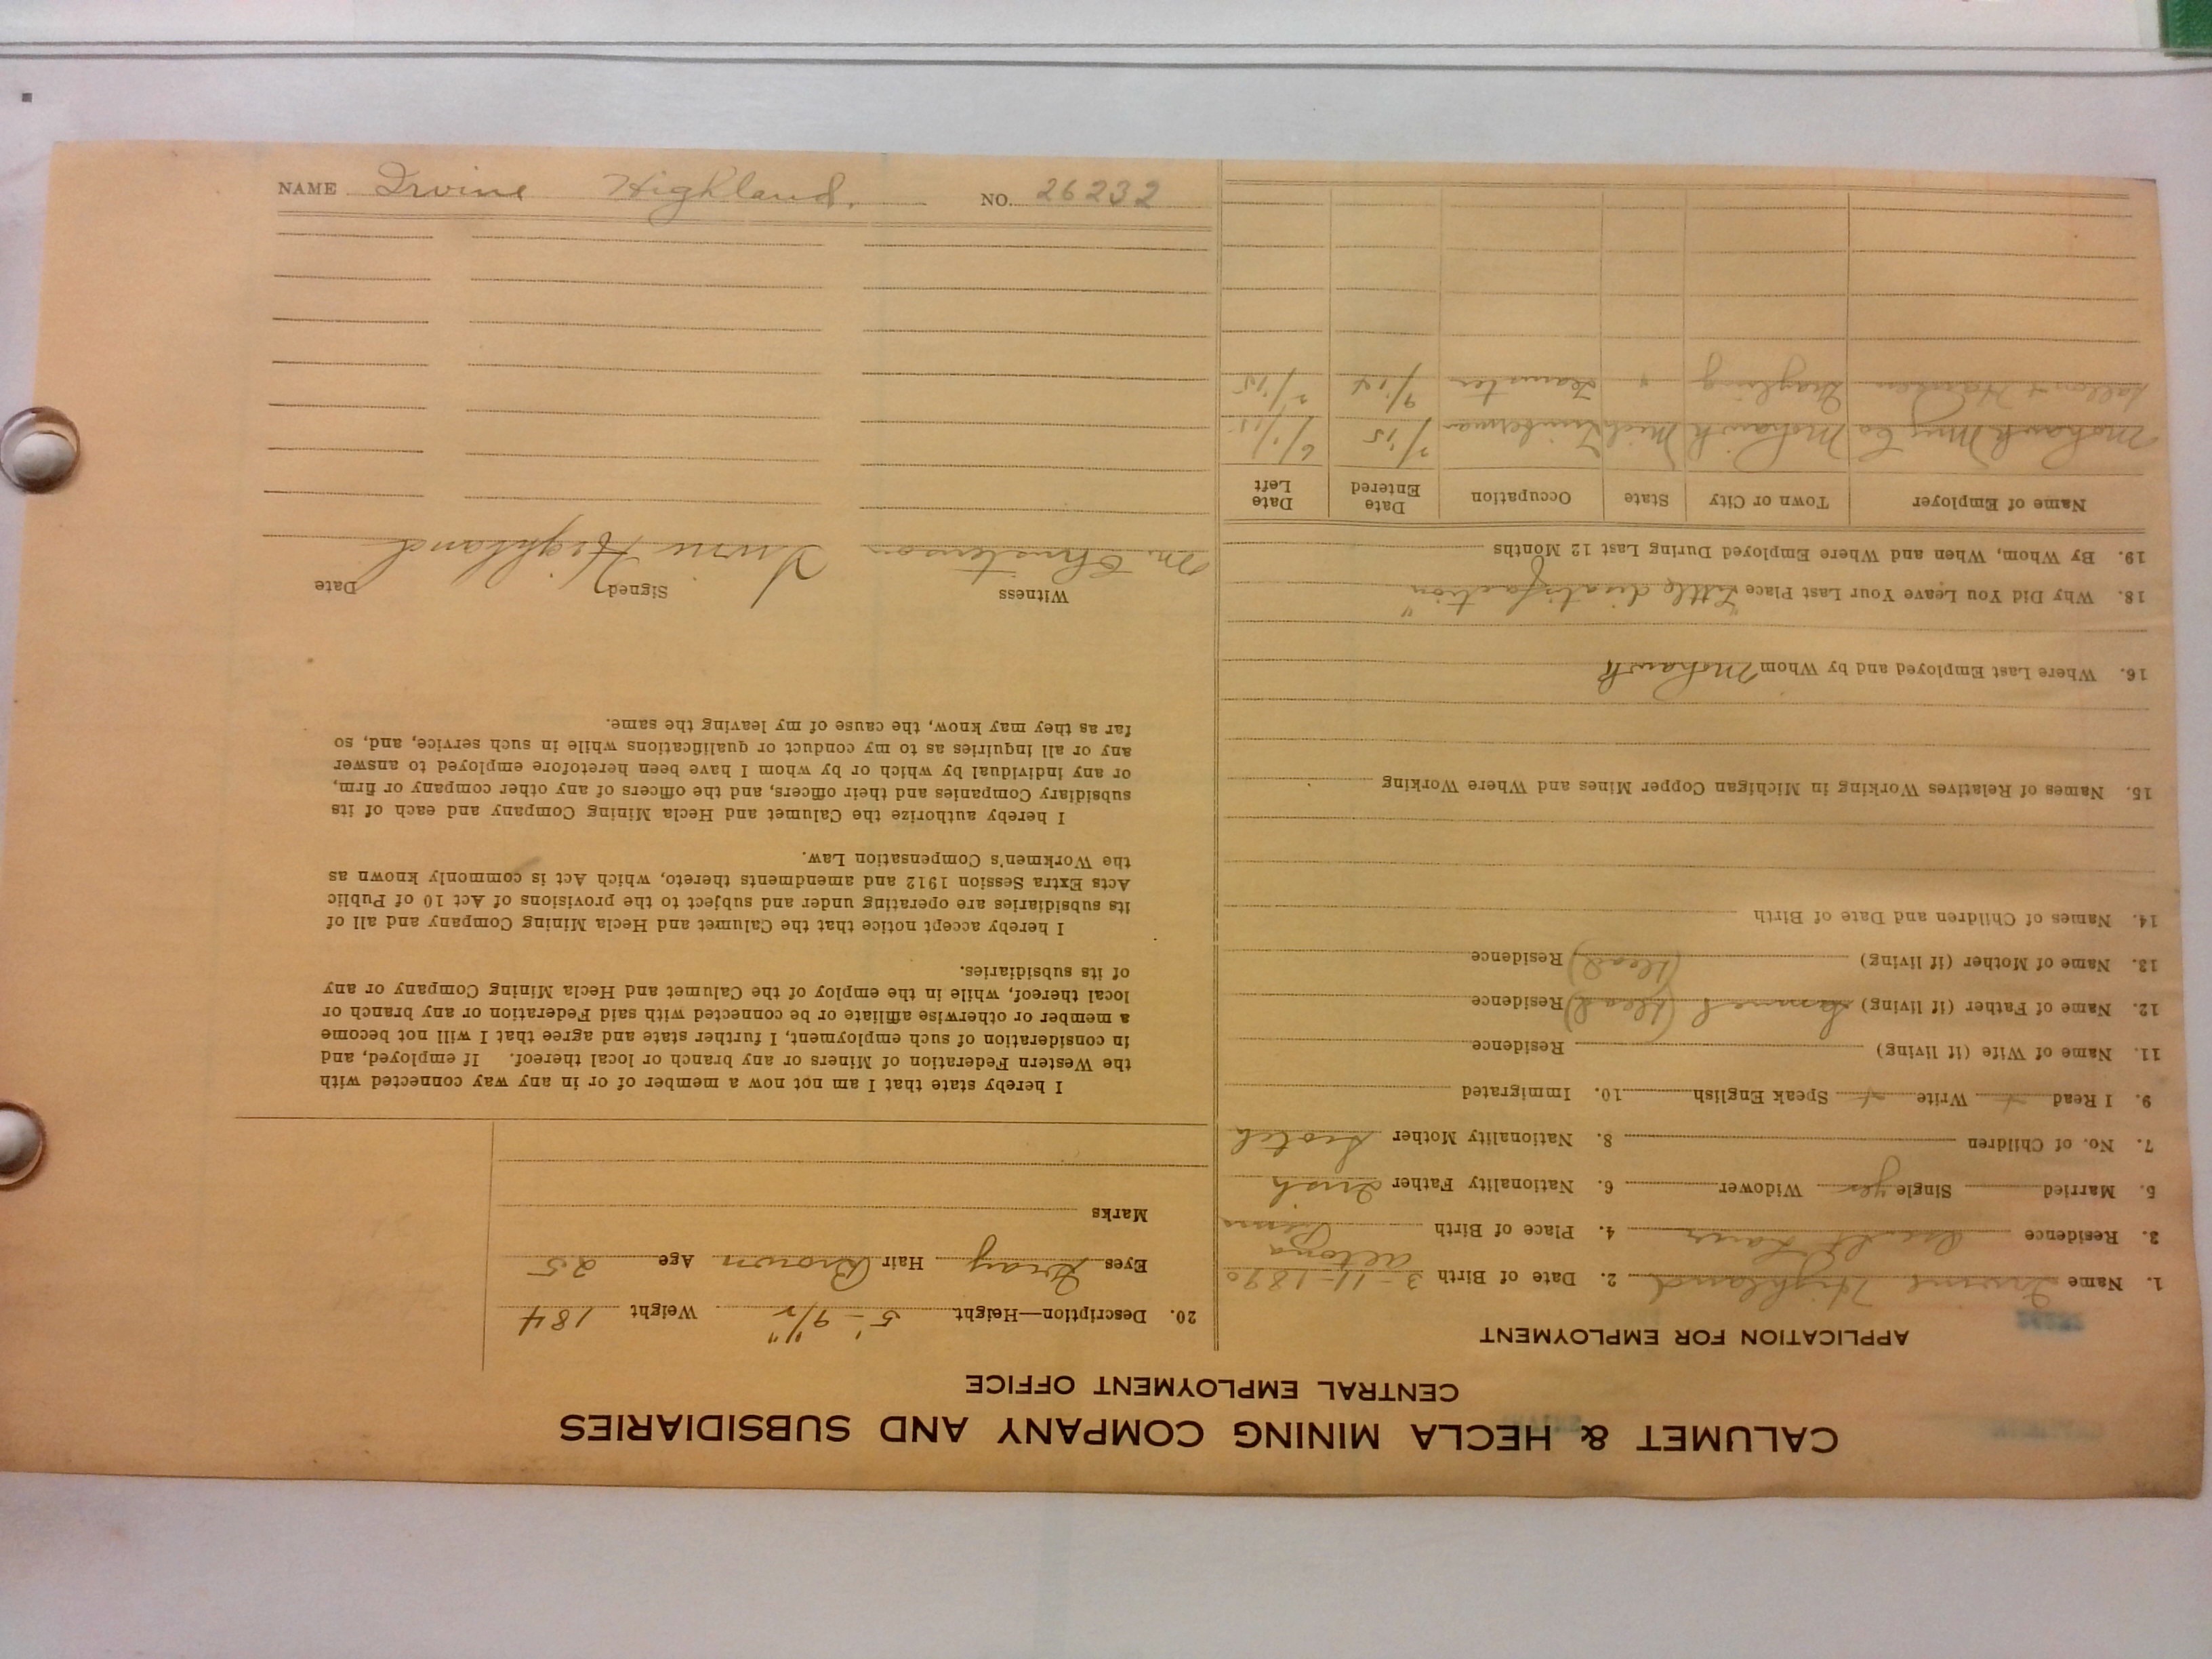 CALUMET & HECLA MINING COMPANY AND SUBSIDIARIES
CENTRAL EMPLOYMENT OFFICE
APPLICATION FOR EMPLOYMENT
1. Name Irvine Highland 2. Date of Birth 3-11-1890
3. Residence 4. Place of Birth Altona
5. Married Single yes Widower 6. Nationality Father Irish
7. No. of Children 8. Nationality Mother Scotch
9. I Read + Write + Speak English 10. Immigrated
11. Name of Wife (if living) Residence
12. Name of Father (if living) Samuel (Dead) Residence
13. Name of Mother (if living) (Dead) Residence
14. Names of Children and Date of Birth
15. Names of Relatives Working in Michigan Copper Mines and Where Working
16. Where Last Employed and by Whom Mohawk
18. Why Did You Leave Your Last Place "Little disatisfaction"
19. By Whom, When and Where Employed During Last 12 Months
Name of Employer Town or City State Occupation Date Entered Date Left
Mohawk Mng Co Mohawk Mich Timberman 2/15 6/1/15
Hanson Grayling " Teamster 9/14 2/15
20. Description—Height 5'-9 1/2" Weight 184
Eyes Gray Hair Brown Age 25
Marks
I hereby state that I am not now a member of or in any way connected with
the Western Federation of Miners or any branch or local thereof. If employed, and
in consideration of such employment, I further state and agree that I will not become
a member or otherwise affiliate or be connected with said Federation or any branch or
local thereof, while in the employ of the Calumet and Hecla Mining Company or any
of its subsidiaries.
I hereby accept notice that the Calumet and Hecla Mining Company and all of
its subsidiaries are operating under and subject to the provisions of Act 10 of Public
Acts Extra Session 1912 and amendments thereto, which Act is commonly known as
the Workmen's Compensation Law.
I hereby authorize the Calumet and Hecla Mining Company and each of its
subsidiary Companies and their officers, and the officers of any other company or firm,
or any individual by which or by whom I have been heretofore employed to answer
any or all inquiries as to my conduct or qualifications while in such service, and, so
far as they may know, the cause of my leaving the same.
Witness Signed Date
M. Christenson Irvine Highland
NAME Irvine Highland. NO. 26232